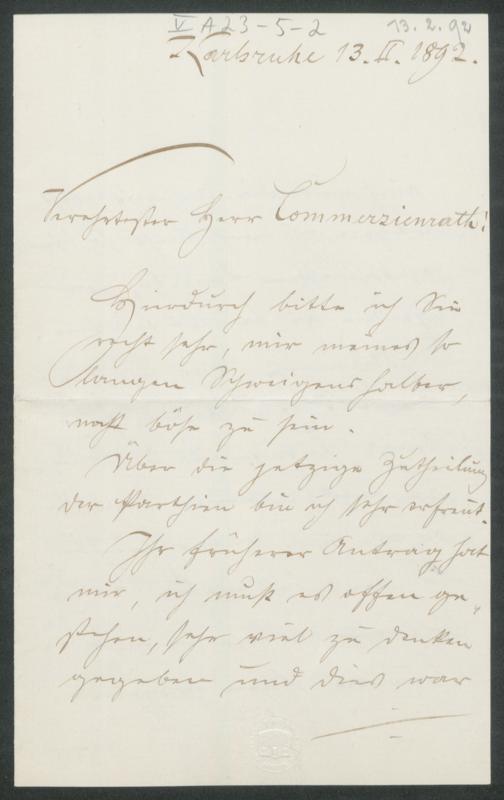 V A 23-5-2 13.2.92
Karlsruhe 13. II. 1892.
Verehrtester Herr Commerzienrath!
Hierdurch bitte ich Sie
recht sehr, mir meines so
langen Schweigens halber,
nicht böse zu sein.
Über die jetzige Zutheilung
der Parthien bin ich sehr erfreut.
Ihr früherer Antrag hat
mir, ich muß es offen ge-
stehen, sehr viel zu denken
gegeben und dies war